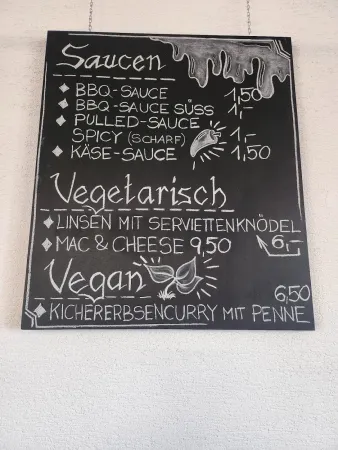 Saucen
BBQ-SAUCE 1,50
BBQ-SAUCE SÜSS 1,-
PULLED-SAUCE
SPICY (SCHARF) 1,-
KÄSE-SAUCE 1,50
Vegetarisch
LINSEN MIT SERVIETTENKNÖDEL
6,-
MAC & CHEESE 9,50
Vegan
6,50
KICHERERBSENCURRY MIT PENNE